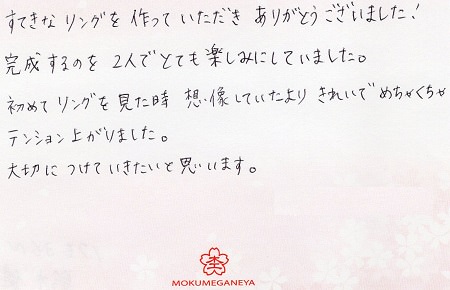 すてきな リングを 作って いただき ありがとうございました！
完成するのを 2人でとても楽しみにしていました。
初めて リングを 見た時 想像していたより きれいで めちゃくちゃ
テンション上がりました。
大切に つけて いきたいと思います。
MOKUMEGANEYA